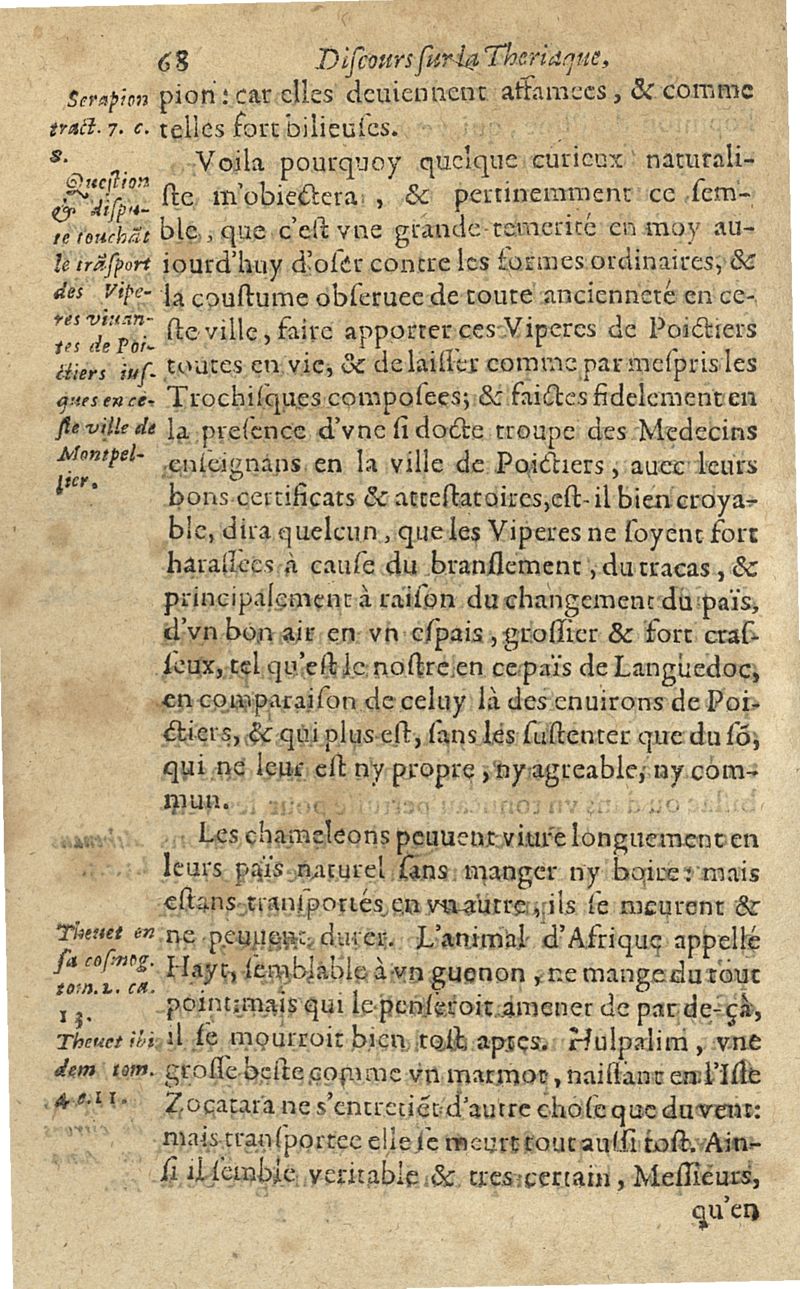 68 Diſcours ſur la Theriaque,
pion : car elles deuiennent affamees, & comme
telles fort bilieuſes.
Voila pourquoy quelque curieux naturali-
ſte m'obiectera, & pertinemment ce ſem-
ble, que c'eſt vne grande temerité en moy au-
iourd'huy d'oſer contre les formes ordinaires, &
la couſtume obſeruee de toute ancienneté en ce-
ſte ville, faire apporter ces Viperes de Poictiers
toutes en vie, & de laiſſer comme par meſpris les
Trochiſques composees; & faictes fidelement en
la preſence d'vne ſi docte troupe des Medecins
enſeignans en la ville de Poictiers, auec leurs
bons certificats & atteſtatoires, eſt-il bien croya-
ble, dira quelcun, que les Viperes ne ſoyent fort
haraſſees à cauſe du branſlement, du tracas, &
principalement à raiſon du changement du païs,
d'vn bon air en vn eſpais, groſſier & fort craſ-
ſeux, tel qu'eſt le noſtre en ce païs de Languedoc,
en comparaiſon de celuy là des enuirons de Poi-
ctiers, & qui plus eſt, ſans les ſuſtenter que du ſõ,
qui ne leur eſt ny propre, ny agreable, ny com-
mun.
Les chameleons peuuent viure longuement en
leurs païs naturel ſans manger ny boire: mais
eſtans tranſportés en vn autre, ils ſe meurent &
ne peuuent durer. L'animal d'Afrique appellé
Hayt, ſemblable à vn guenon, ne mange du tout
point: mais qui le penſeroit amener de par de-çà,
il ſe mourroit bien toſt apres. Hulpalim, vne
groſſe beſte comme vn marmot, naiſſant en l'Iſle
Zocatara ne s'entretiẽt d'autre choſe que du vent:
mais tranſportee elle ſe meurt tout auſſi toſt. Ain-
ſi il ſemble veritable & tres certain, Meſſieurs,
qu'en
Serapion
tract. 7. c.
8.
Queſtion
& diſpu-
te touchãt
le trãſport
des Vipe-
res viuan-
tes de Poi-
ctiers iuſ-
ques en ce-
ſte ville de
Montpel-
lier.
Theuet en
ſa coſmog.
tom. 1. ca.
13.
Theuet ibi
dem tom.
4. c. 11.